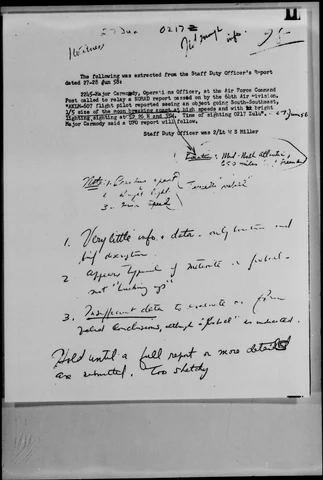 27 Jun 0217Z
The following was extracted from the Staff Duty Officer's Report
dated 27-28 Jun 58:
2245-Major Carmody, Operations Officer, at the Air Force Command
Post called to relay a NORAD report passed on by the 64th Air Division.
flight pilot reported seeing an object going South-Southwest,
1/5 size of the moon breaking at high speeds and with bright
lighting sighting at 52 26 N and Time of sighting 0217 Zulu".
Major Carmody said a UFO report will follow.
Staff Duty Officer was 2/Lt W S Miller
Location: Mid-North Atlantic,
Note: 1.
2. Bright light
3. speed
1. Very little info & data - only location and
brief description.
2 Appears typical of meteorite or fireball -
not "breaking up"
3. Insufficient data to evaluate or form
valid conclusions, although a "fireball" is indicated.
Hold until a full report or more details
are submitted. Too sketchy